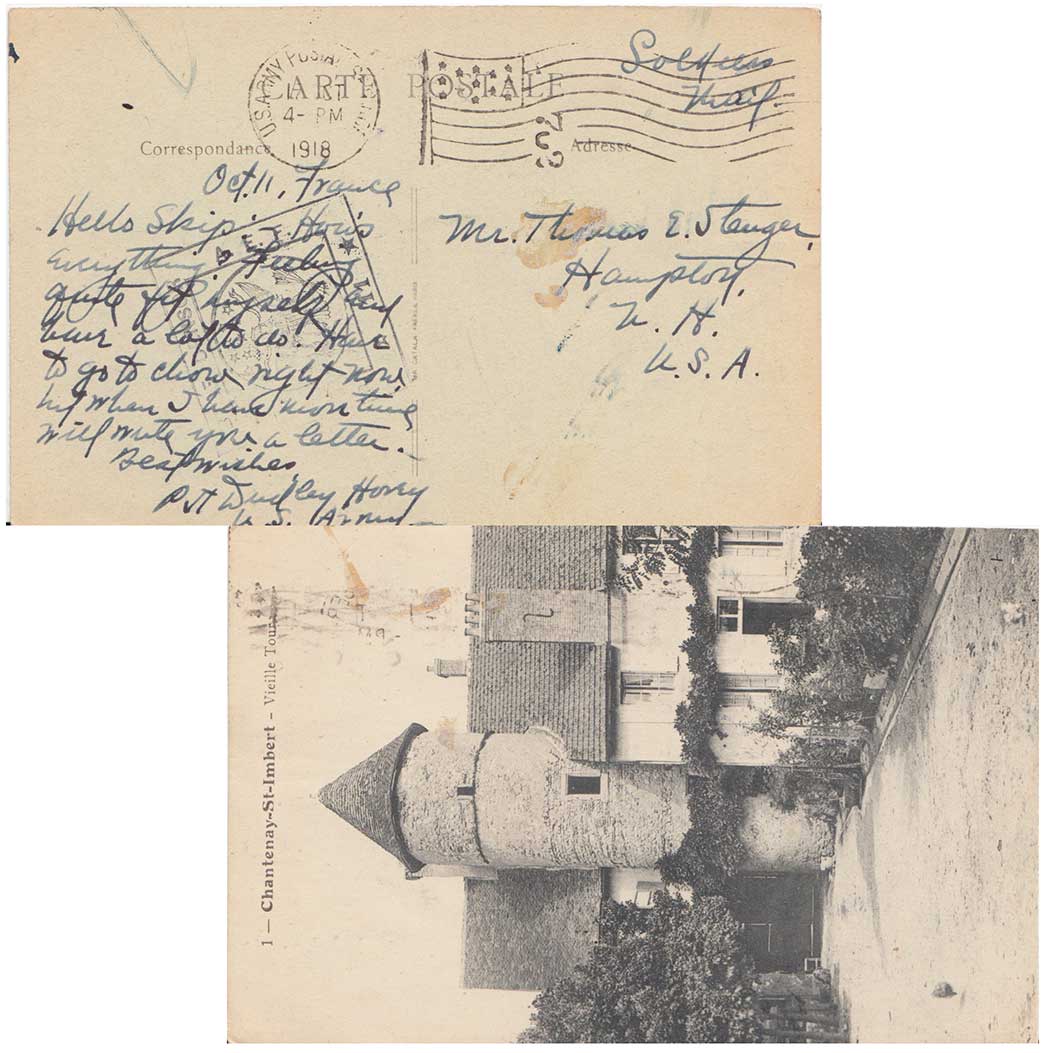 Soldiers
Mail.
CARTE POSTALE
U.S. ARMY POSTAL SERVICE
4- PM
1918
702
Correspondance
Adresse
Oct. 11, France
Hello Skip:- How's
everything? Feeling
quite fit myself and
have a lot to do. Have
to go to chow right now,
but when I have more time
will write you a letter.
Best wishes,
Pvt Dudley Hovey
U.S. Army
Mr. Thomas E. Stenger,
Hampton,
N. H.
U. S. A.
A.E.F.
1 — Chantenay-St-Imbert – Vieille Tour